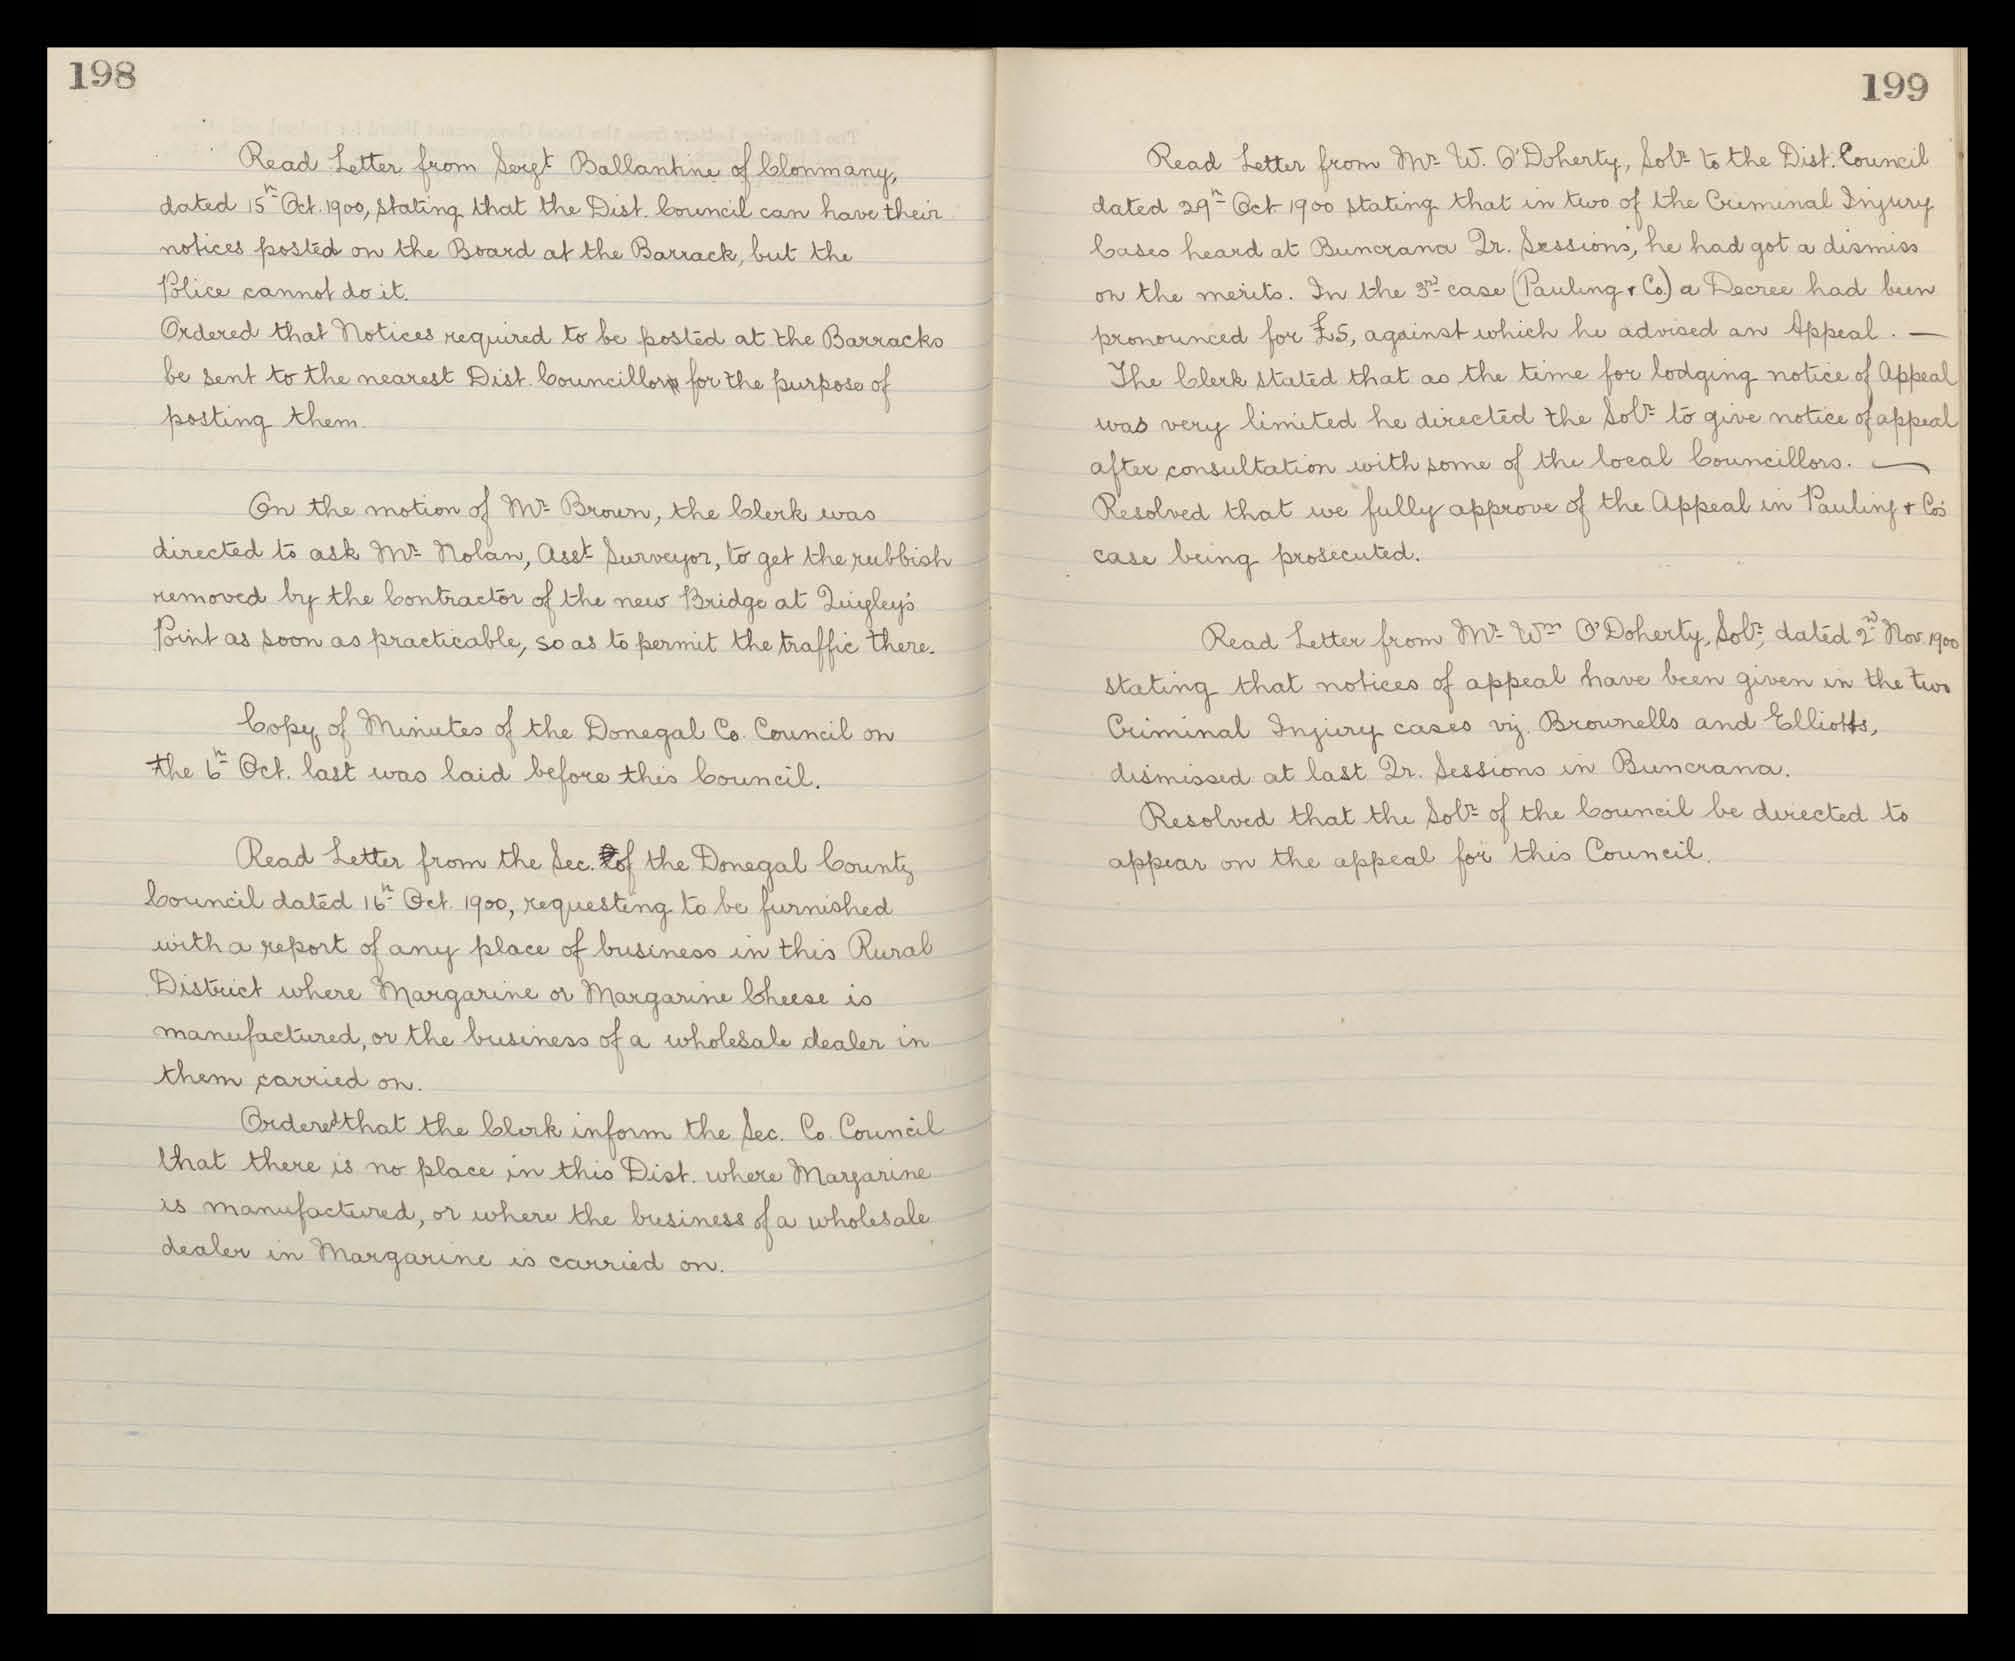 198
Read Letter from Sergt Ballantine of Clonmany,
dated 15th Oct. 1900, stating that the Dist. Council can have their
notices posted on the Board at the Barrack, but the
Police cannot do it.
Ordered that Notices required to be posted at the Barracks
be sent to the nearest Dist. Councillor for the purpose of
posting them.
On the motion of Mr Brown, the Clerk was
directed to ask Mr Nolan, Asst Surveyor, to get the rubbish
removed by the Contractor of the new Bridge at Quigley's
Point as soon as practicable, so as to permit the traffic there.
Copy of Minutes of the Donegal Co. Council on
the 6th Oct. last was laid before this Council.
Read Letter from the Sec. of the Donegal County
Council dated 16th Oct. 1900, requesting to be furnished
with a report of any place of business in this Rural
District where Margarine or Margarine Cheese is
manufactured, or the business of a wholesale dealer in
them carried on.
Ordered that the Clerk inform the Sec. Co. Council
that there is no place in this Dist. where Margarine
is manufactured, or where the business of a wholesale
dealer in Margarine is carried on.
199
Read Letter from Mr W. O'Doherty, Solr to the Dist. Council
dated 29th Oct 1900 stating that in two of the Criminal Injury
Cases heard at Buncrana Qr. Sessions, he had got a dismiss
on the merits. In the 3rd case (Pauling & Co.) a Decree had been
pronounced for £5, against which he advised an Appeal. —
The Clerk stated that as the time for lodging notice of Appeal
was very limited he directed the Solr to give notice of appeal
after consultation with some of the local Councillors. —
Resolved that we fully approve of the Appeal in Pauling & Co's
case being prosecuted.
Read Letter from Mr Wm O'Doherty, Solr, dated 2nd Nov. 1900
stating that notices of appeal have been given in the two
Criminal Injury cases viz. Brownells and Elliotts,
dismissed at last Qr. Sessions in Buncrana.
Resolved that the Solr of the Council be directed to
appear on the appeal for this Council.